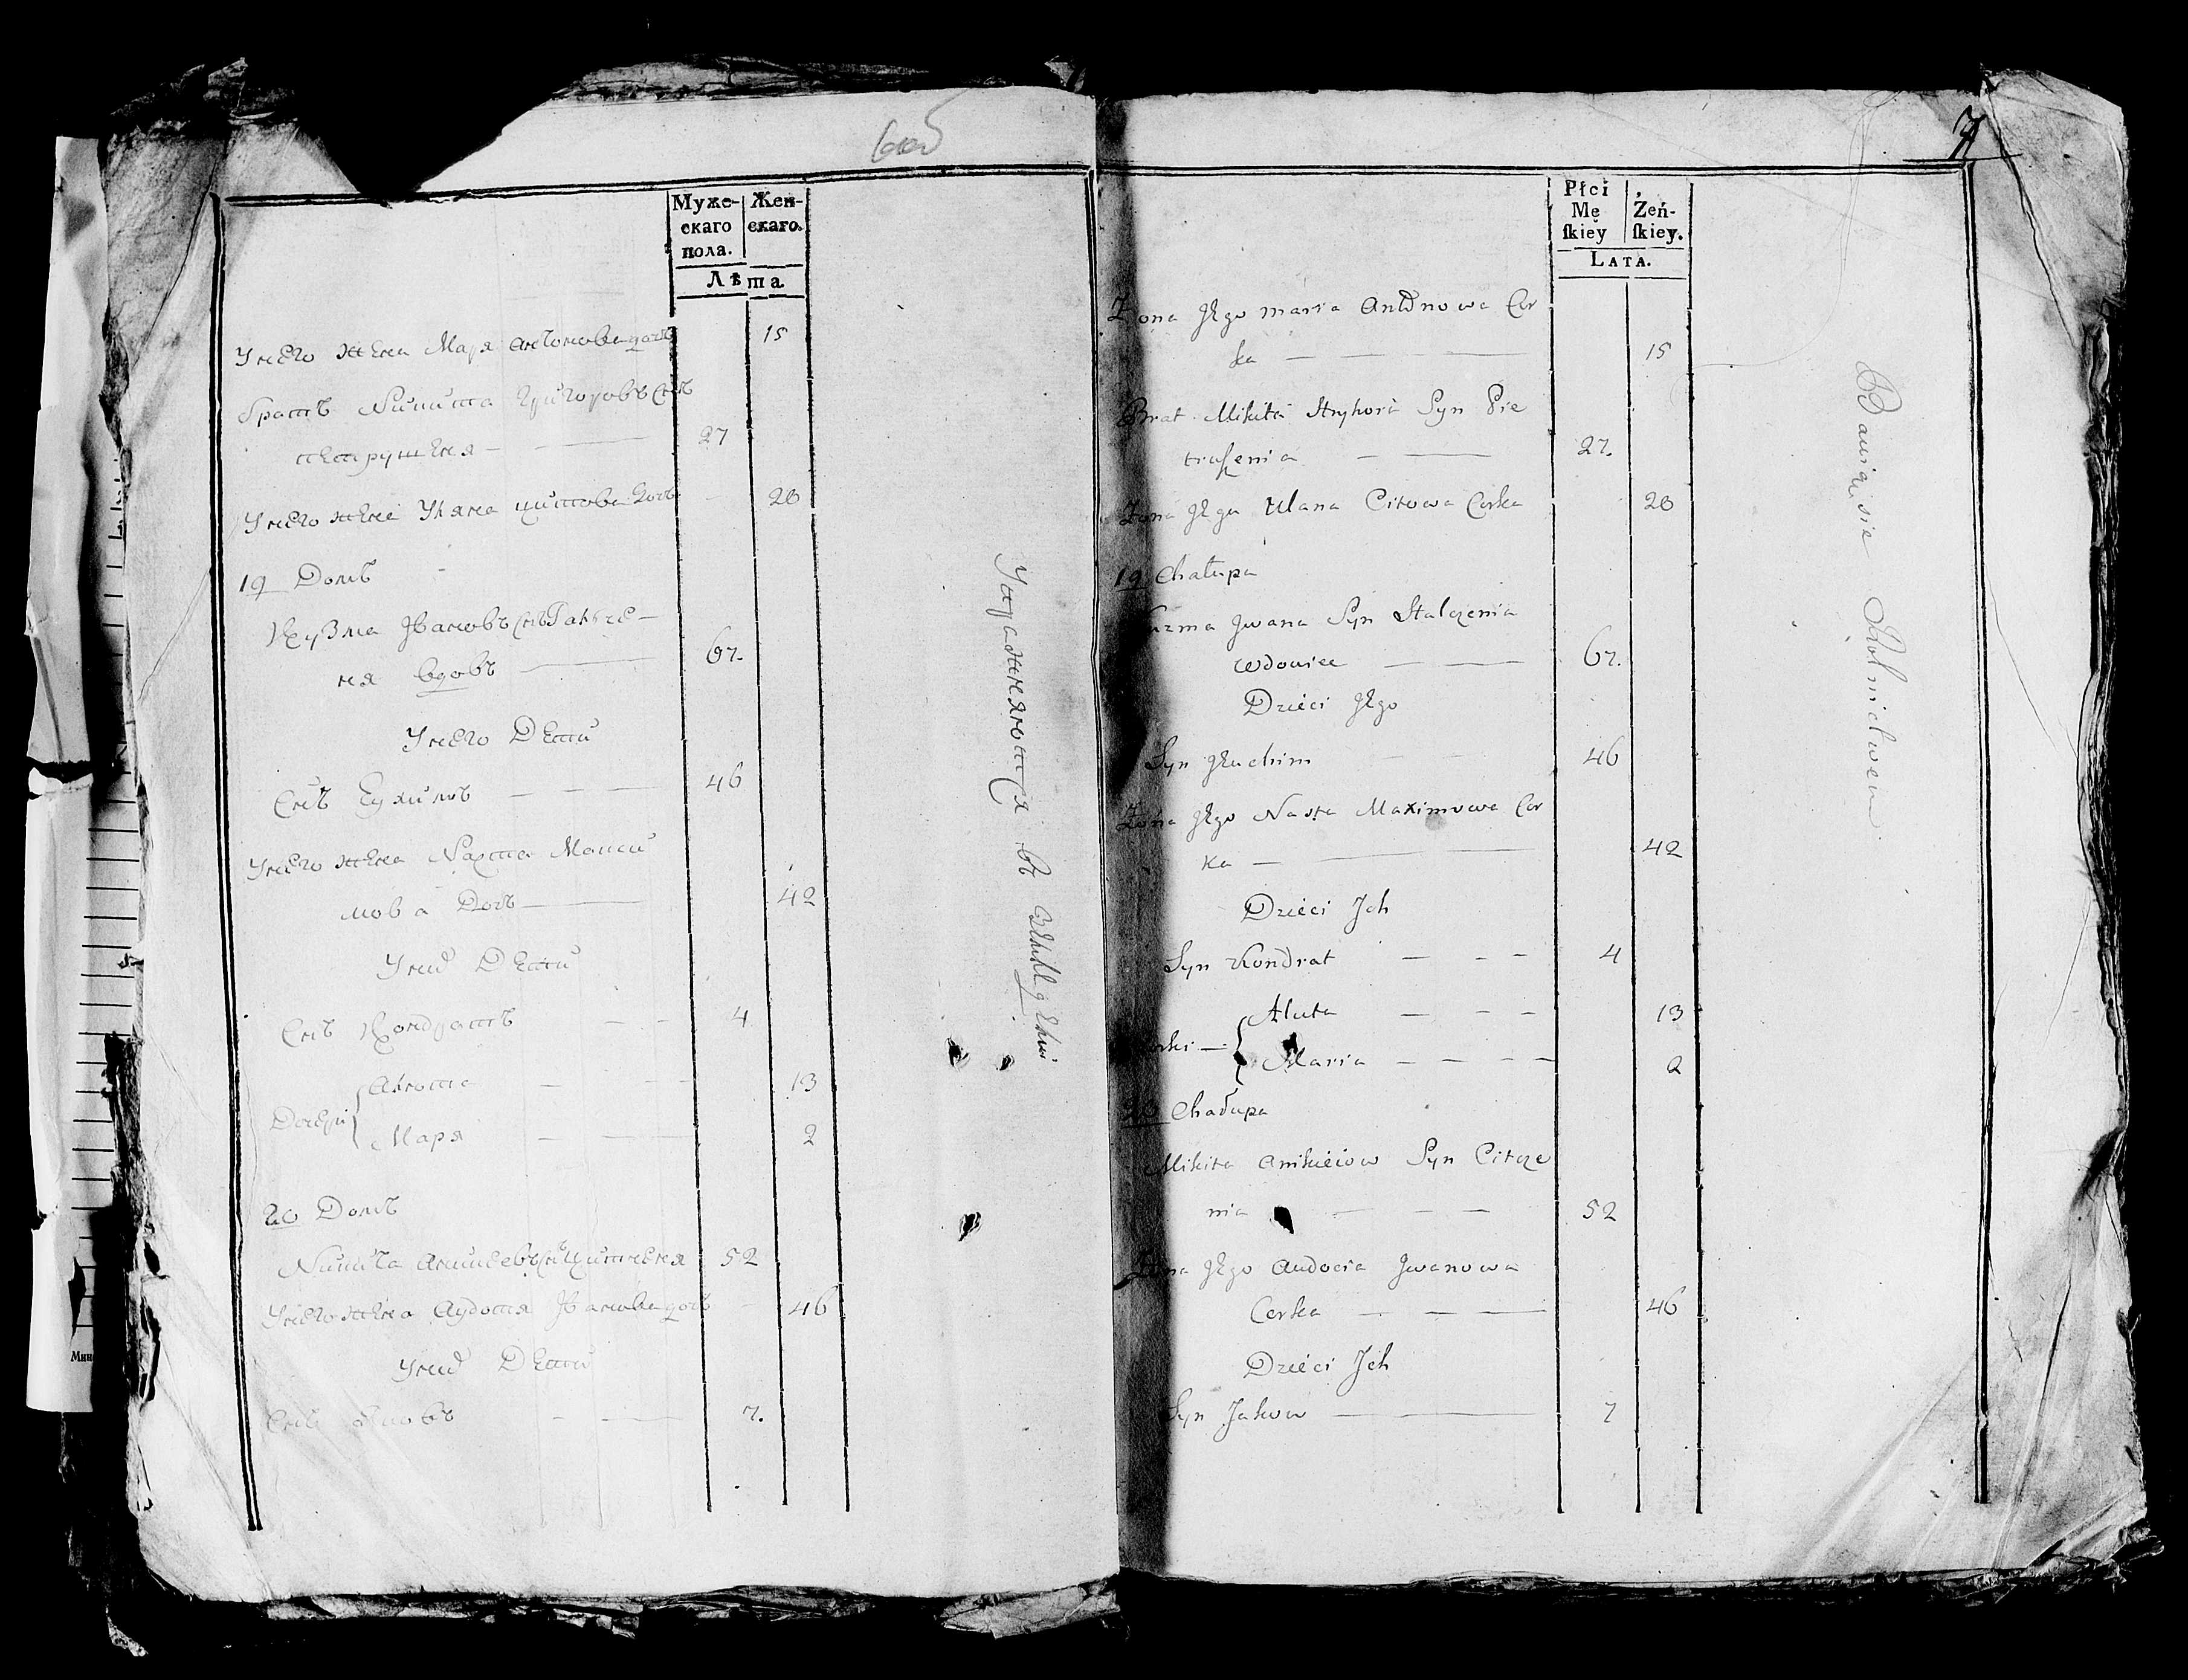 Муже-
скаго
пола.
Жен-
скаго.
Лѣта
Унего жена Маря антонова дочъ 15
братъ Микита Григоровъ снъ
петрушеня — 27
Унего жена Уляна цитова дочъ 20
19 Домъ
Кузма Iвановъ снъ Галче-
ня вдовъ — 67.
Унего Дети
Снъ Еухимъ — — — 46
Унего жена Макси
мова Дочъ — 42
Уних Дети
Снъ Кондратъ — - 4
Дочери { Алюта — — - 13
Маря — — — 2
20 Домъ
Микита аникеевъ снъ Цитченя 52
Унего жена Аудотя Iванова дочъ - 46
Уних Дети
Снъ Яковъ — — — 7.
Упражняются въ земледелии
7
Płci
Mę
ſkiey
Żeń-
ſkiey.
LATA.
Żona Jego maria Antonowa Cor
ka — — — — 15
Brat Mikita Hryhora Syn Pie
truszenia — — 27.
Żona Jego Ulana Citowa Corka 20
19 Chałupa
Kuzma Jwana Syn Halczenia
wdowiec — — — 67.
Dzieci Jego
Syn Jeuchim — — 46
Żona Jego Nasta Maximowa Cor
ka — — — 42
Dzieci Jch
Syn Kondrat — - - 4
Corki — { Aluta — - - 13
Maria — — - — 2
20 Chałupa
Mikita anikieiow Syn Citcze
nia — — — 52
Żona Jego Audocia Jwanowa
Corka — — — 46
Dzieci Jch
Syn Jakow — — 7
Bawią sie Rolnictwem